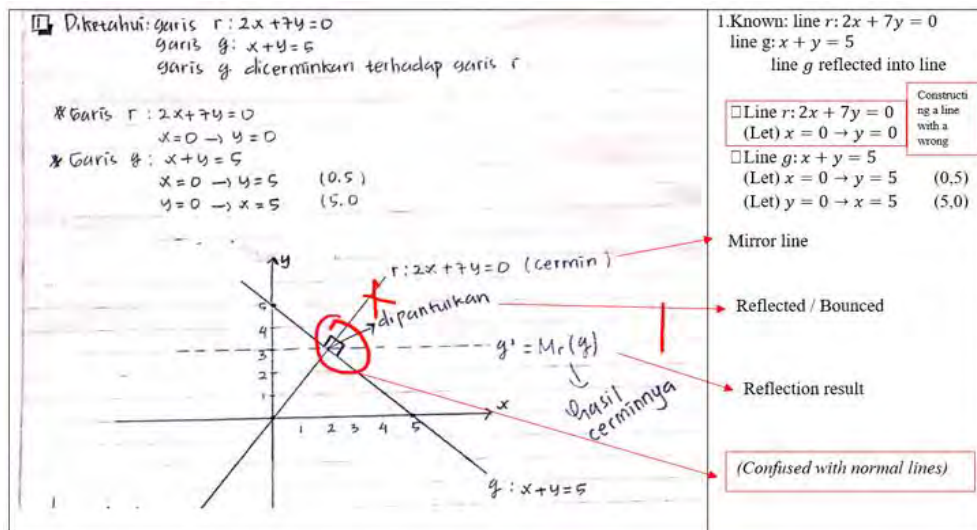 1 Diketahui: garis r : 2x + 7y = 0
garis g : x + y = 5
garis g dicerminkan terhadap garis r
* Garis r : 2x + 7y = 0
x = 0 → y = 0
* Garis g : x + y = 5
x = 0 → y = 5 (0.5)
y = 0 → x = 5 (5.0
y
r : 2x + 7y = 0 (cermin)
dipantulkan
5
4
3
2
1
g' = Mr(g)
hasil
cerminnya
x
1 2 3 4 5
g : x + y = 5
1.Known: line r: 2x + 7y = 0
line g: x + y = 5
line g reflected into line
□Line r: 2x + 7y = 0
(Let) x = 0 → y = 0
Constructi
ng a line
with a
wrong
□Line g: x + y = 5
(Let) x = 0 → y = 5 (0,5)
(Let) y = 0 → x = 5 (5,0)
Mirror line
Reflected / Bounced
Reflection result
(Confused with normal lines)